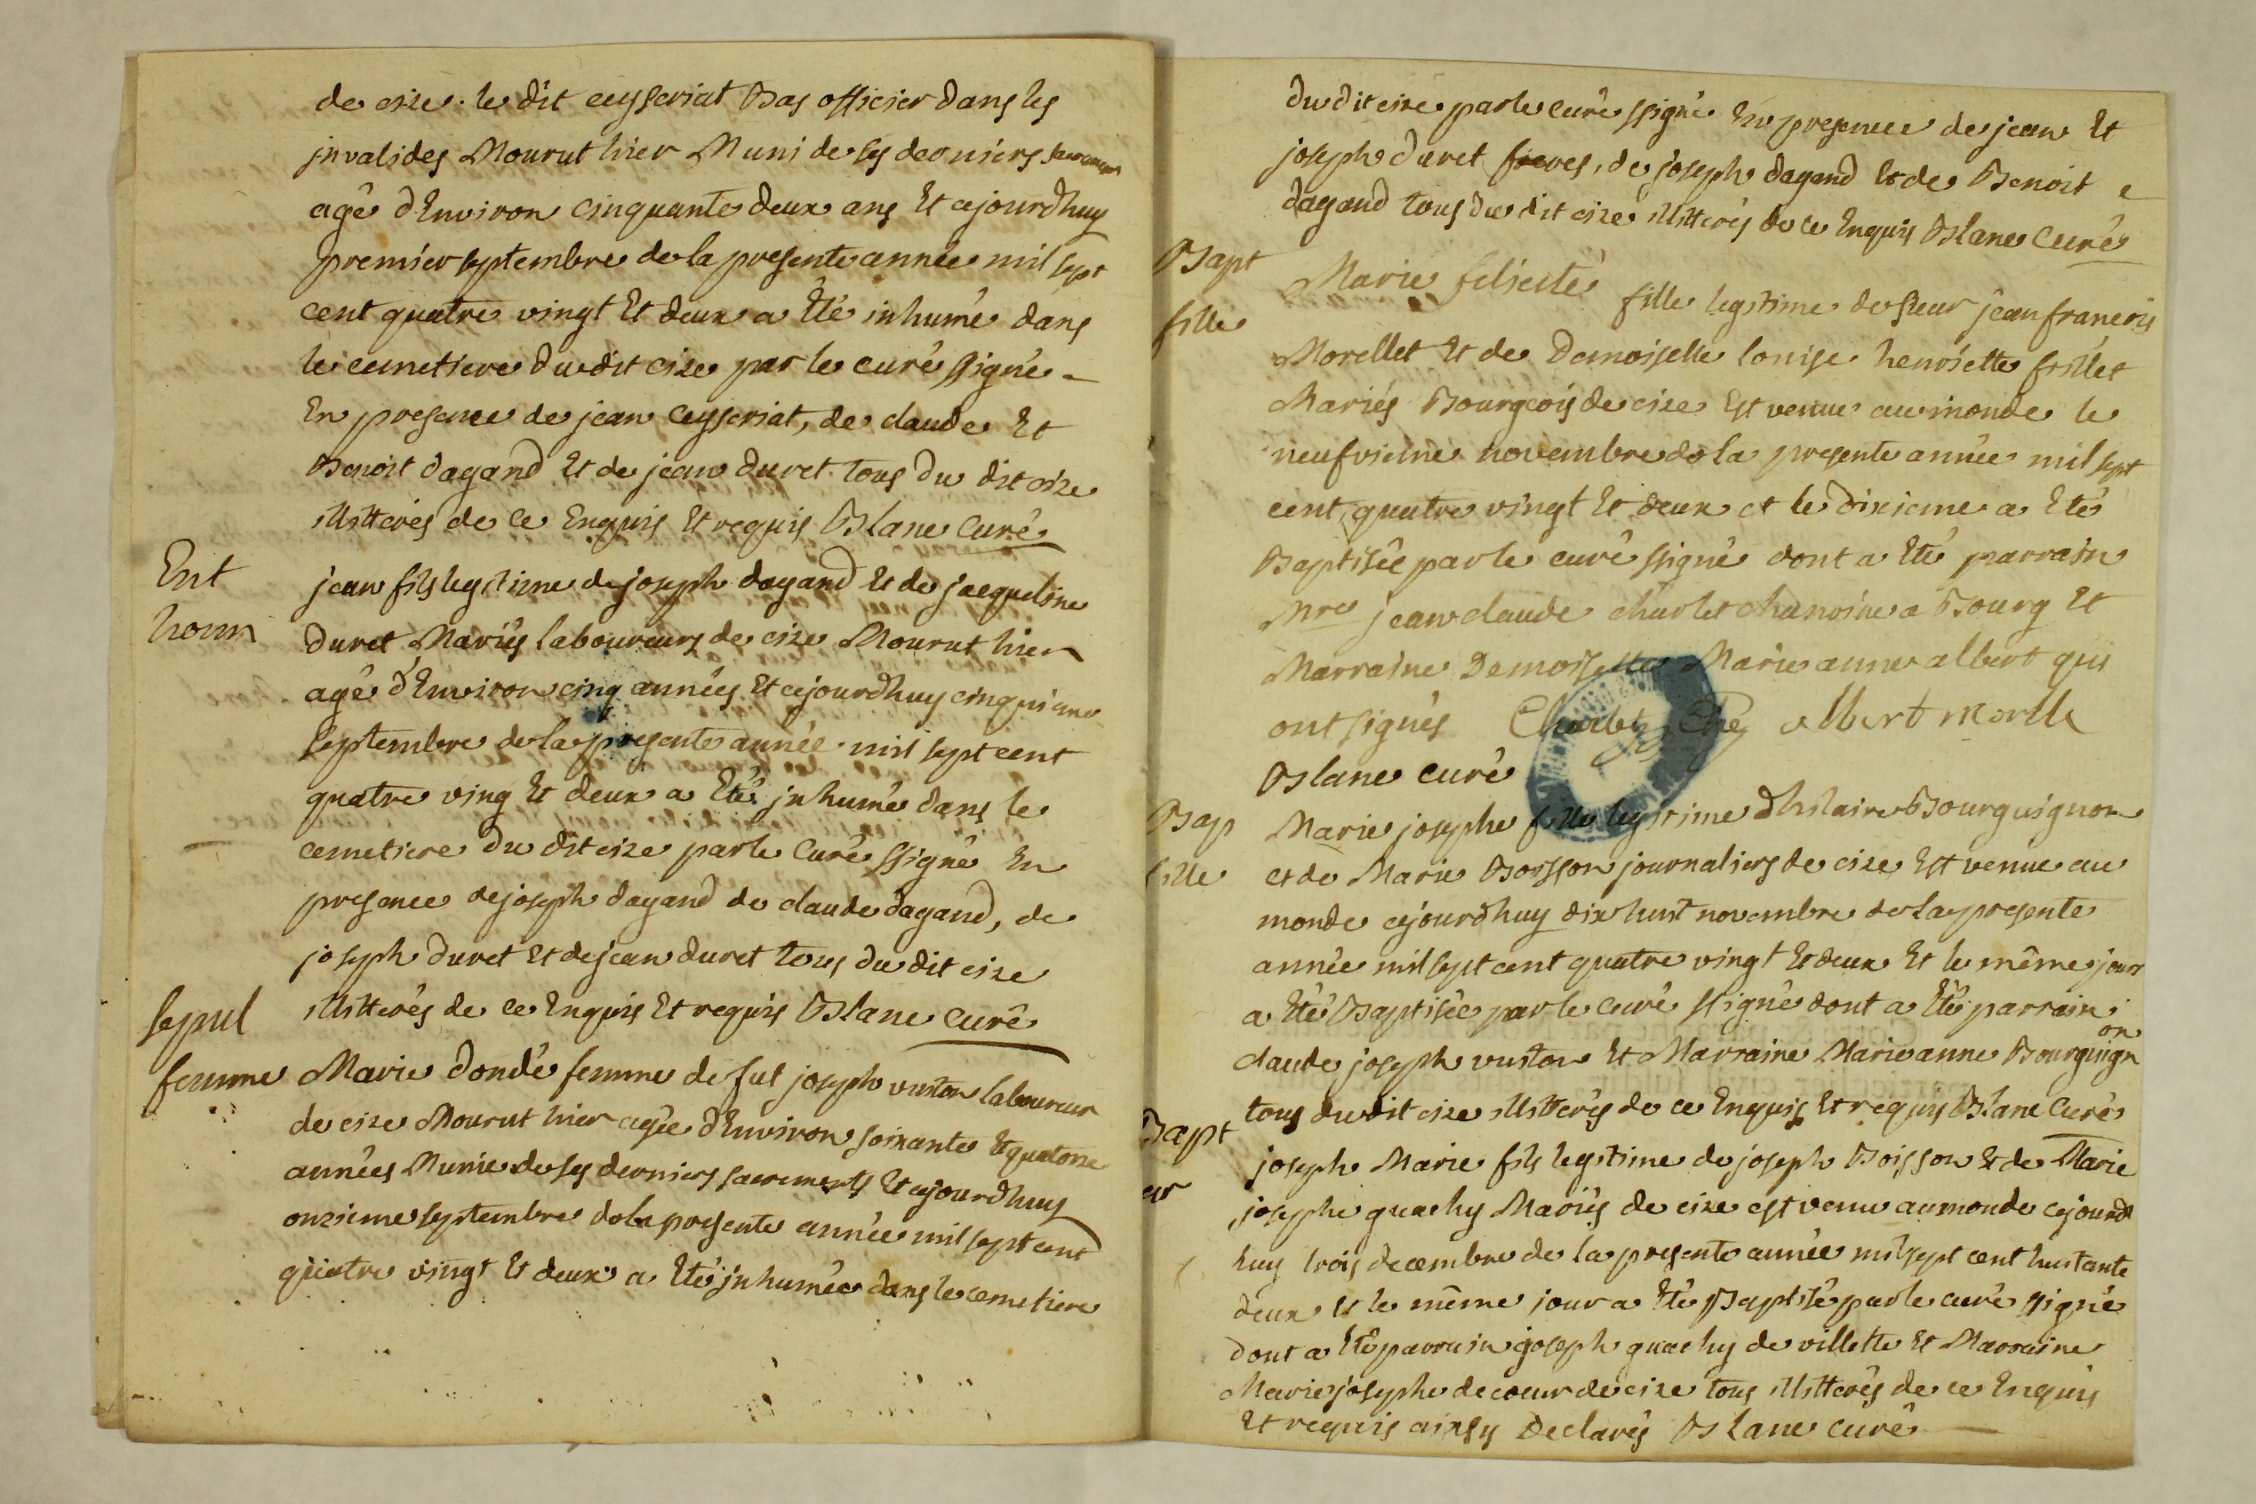 de cize. le dit ceyseriat Bas officier dans les
jnvalides Mourut hier Muni de ses derniers sacremens
agé d'Environ cinquante deux ans Et cejourdhuy
premier septembre de la presente année mil sept
cent quatre vingt Et deux a Eté inhumé dans
le cemetiere du dit cize par le curé ssigné
En presence de jean Ceyseriat, de claude Et
Benoit dagand Et de jean duret tous du dit cize
illitterés de ce Enquis Et requis Blanc Curé
Ent
hom
jean fils legitime de joseph dagand Et de jacqueline
duret Mariés laboureurs de cize Mourut hier
agé d'Environ cinq années Et cejourdhuy cinquieme
septembre de la presente année mil sept cent
quatre ving Et deux a Eté jnhumé dans le
cemetiere du dit cize par le Curé ssigné En
presence de joseph dagand de claude dagand, de
joseph duret Et de jean duret tous du dit cize
illitterés de ce Enquis Et requis Blanc curé
Sepul
femme
Marie dondé femme de fut joseph vuiton laboureur
de cize Mourut hier agée d'Environ soixante Et quatorze
années Munie de ses derniers sacrements Et cejourdhuy
onzieme septembre de la presente année mil sept cent
quatre vingt Et deux a Eté jnhumée dans le cemetiere
du dit cize par le curé ssigné En presence de jean Et
joseph duret freres, de joseph dagand Et de Benoit
dagand tous du dit cize illitterés de ce Enquis Blanc Curé
Bapt
fille
Marie felicité fille legitime de sieur jean francois
Morellet Et de Demoiselle louise henriette frillet
Mariés Bourgeois de cize Est venue au monde le
neufvieme novembre de la presente année mil sept
cent quatre vingt Et deux et le dixieme a Eté
Baptisée par le curé ssigné dont a Eté parrain
Mre jean claude charlet chanoine a Bourg Et
Marraine Demoiselle Marie anne albert qui
ont signés Charlet Che albert morlle
Blanc curé
Bap
fille
Marie josephe fille legitime d'hilaire Bourguignon
et de Marie Boisson journaliers de cize Est venue au
monde cejourdhuy dix huit novembre de la presente
année mil sept cent quatre vingt Et deux Et le même jour
a Eté Baptisée par le Curé ssigné dont a Eté parrain
claude joseph vuiton Et Marraine Marie anne Bourguignon
tous du dit cize illitterés de ce Enquis Et requis Blanc Curé
Bapt
joseph Marie fils legitime de joseph Boisson Et de Marie
josephe guachy Mariés de cize est venu au monde cejourd
huy trois decembre de la presente année mil sept cent huitante
deux Et le même jour a Eté Baptisé par le curé ssigné
dont a Eté parrain joseph guachy de villette Et Marraine
Marie josephe decoeur de cize tous illitterés de ce Enquis
Et requis ainsy Declarés Blanc curé